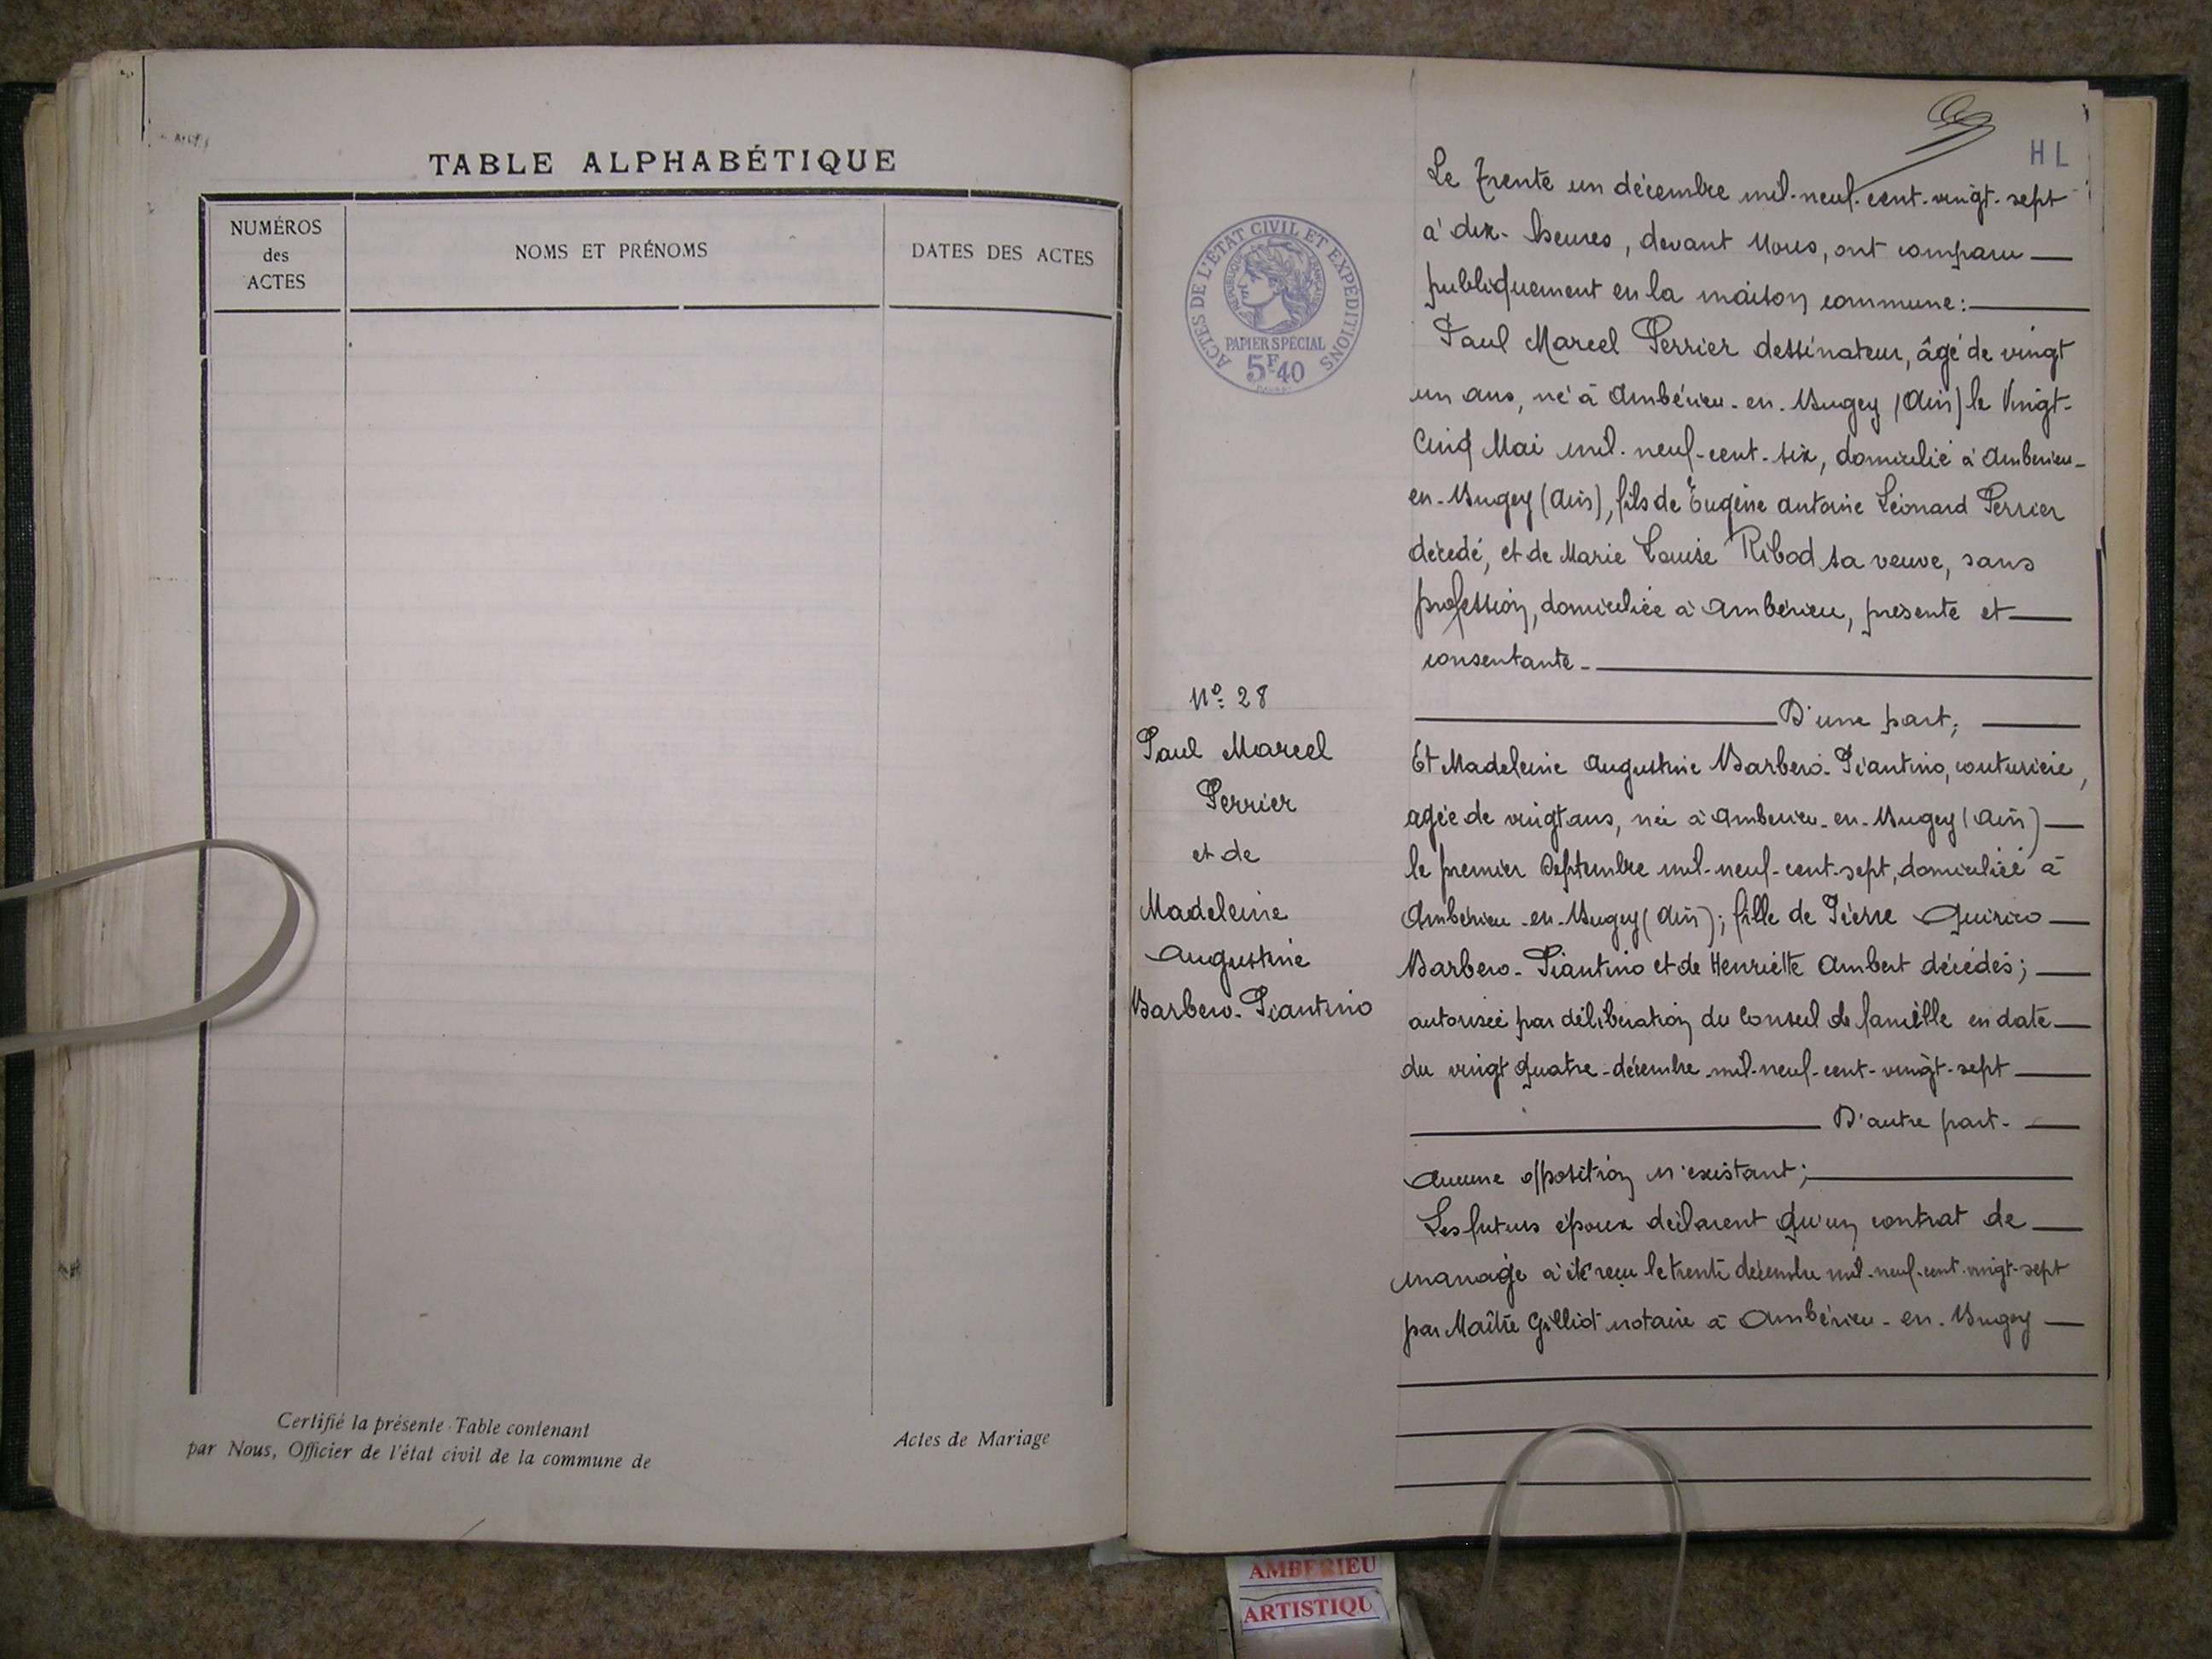 TABLE ALPHABÉTIQUE
NUMÉROS
des
ACTES
NOMS ET PRÉNOMS
DATES DES ACTES
Certifié la présente Table contenant
Actes de Mariage
par Nous, Officier de l'état civil de la commune de
HL
ACTES DE L'ÉTAT CIVIL ET EXPÉDITIONS
RÉPUBLIQUE FRANÇAISE
PAPIER SPÉCIAL
5F40
N° 28
Paul Marcel
Perrier
et de
Madeleine
Augustine
Barbero-Piantino
Le Trente un décembre mil-neuf-cent-vingt-sept
à dix-heures, devant Nous, ont comparu
publiquement en la maison commune:
Paul Marcel Perrier dessinateur, âgé de vingt
un ans, né à Ambérieu-en-Bugey (Ain) le Vingt-
Cinq Mai mil-neuf-cent-six, domicilié à Ambérieu-
en-Bugey (Ain), fils de Eugène Antoine Léonard Perrier
décédé, et de Marie Louise Ribod sa veuve, sans
profession, domiciliée à Ambérieu, présente et
consentante-
D'une part;
Et Madeleine Augustine Barbero-Piantino, couturière,
agée de vingt ans, née à Ambérieu-en-Bugey (Ain)
le premier Septembre mil-neuf-cent-sept, domiciliée à
Ambérieu-en-Bugey (Ain); fille de Pierre Quirico
Barbero-Piantino et de Henriette Ambert décédés;
autorisée par délibération du Conseil de famille en date
du vingt quatre-décembre mil-neuf-cent-vingt-sept
D'autre part-
Aucune opposition n'existant;
Les futurs époux déclarent qu'un contrat de
mariage a été reçu le trente décembre mil-neuf-cent-vingt-sept
par Maître Gilliot notaire à Ambérieu-en-Bugey
AMBERIEU
ARTISTIQU